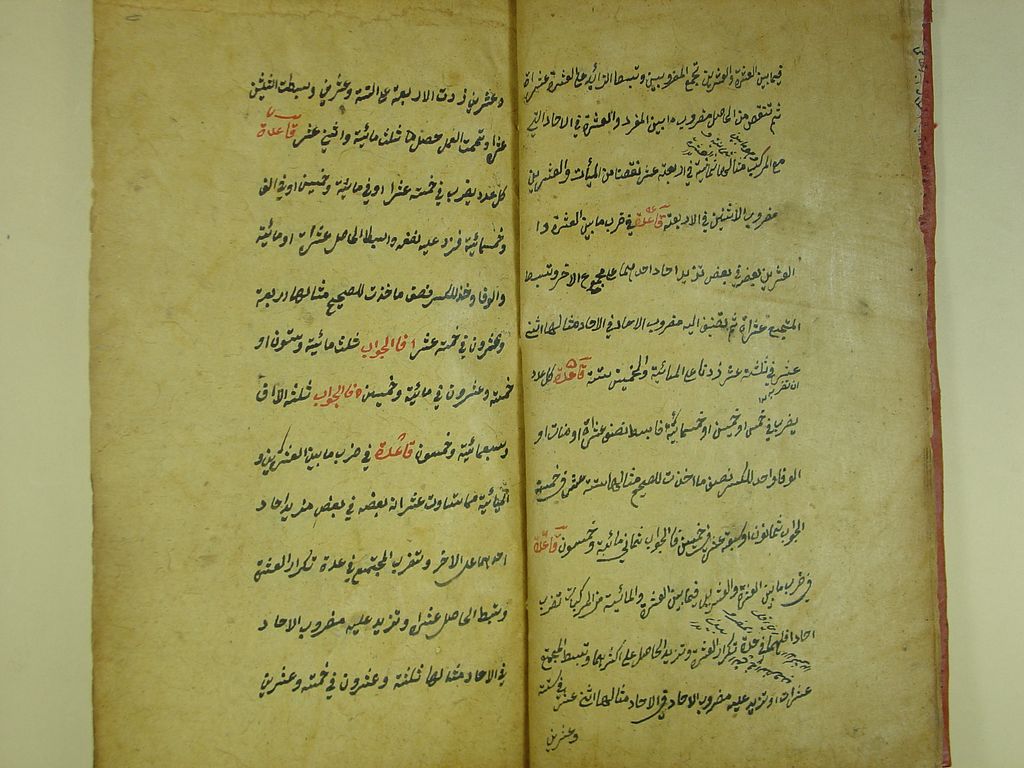 فيما بين العشرة والعشرين تجمع المضروبين وتبسط الزائد على العشرة عشرات
ثم تنقص من الحاصل مضروب ما بين المفرد والعشرة في الاحاد التي
مع المركب مثالها ثمانية في اربعة عشر نقصنا من المأت والعشرين
مضروب الاثنين في الاربعة قاعدة في ضرب ما بين العشرة وا
العشرين بعضه في بعض تزيد احاد احدهما على مجموع الاخر وتبسط
المجتمع عشرات ثم تضيف اليه مضروب الاحاد في الاحاد مثالها اثنى
عشر في ثلثة عشر زدنا على المائة والخمسين ستة قاعدة كل عدد
يضرب في خمس او خمسين او خمسمائة فابسط نصفه عشرات او مئات او
الوفا وخذ للكسر نصف ما اخذت للصحيح مثالها ستة عشر في خمسة
الجواب ثمانون او سبعة عشر في خمسين فالجواب ثماني مائة وخمسون قاعدة
في ضرب ما بين العشرة والعشرين فيما بين العشرة والمائة من المركبات تضرب
احاد اقلهما في عدة تكرار العشرة وتزيد الحاصل على اكثرهما وتبسط المجتمع
عشرات وتزيد عليه مضروب الاحاد في الاحاد مثالها اثنى عشر في ستة
وعشرين
وعشرين زدت الاربعة على الستة وعشرين وبسطت الثلثين
عشرا وتممت العمل حصل ثلث مائة واثني عشر قاعدة
كل عدد يضرب في خمسة عشر او في مائة وخمسين او في الف
وخمسمائة فزد عليه نصفه وابسط الحاصل عشرات او مائة
والوفا وخذ للكسر نصف ما خذت للصحيح مثالها اربعة
وعشرون في خمسة عشر فالجواب ثلث مائة وستون او
خمسة وعشرون في مائة وخمسين فالجواب ثلثة الاف
وسبعمائة وخمسون قاعدة في ضرب ما بين العشرين و
المائة مما تساوت عشراته بعضه في بعض تزيد احاد
احدهما على الاخر وتضرب المجتمع في عدة تكرار العشرة
وتبسط الحاصل عشرات وتزيد عليه مضروب الاحاد
في الاحاد مثالها ثلثة وعشرون في خمسة وعشرين